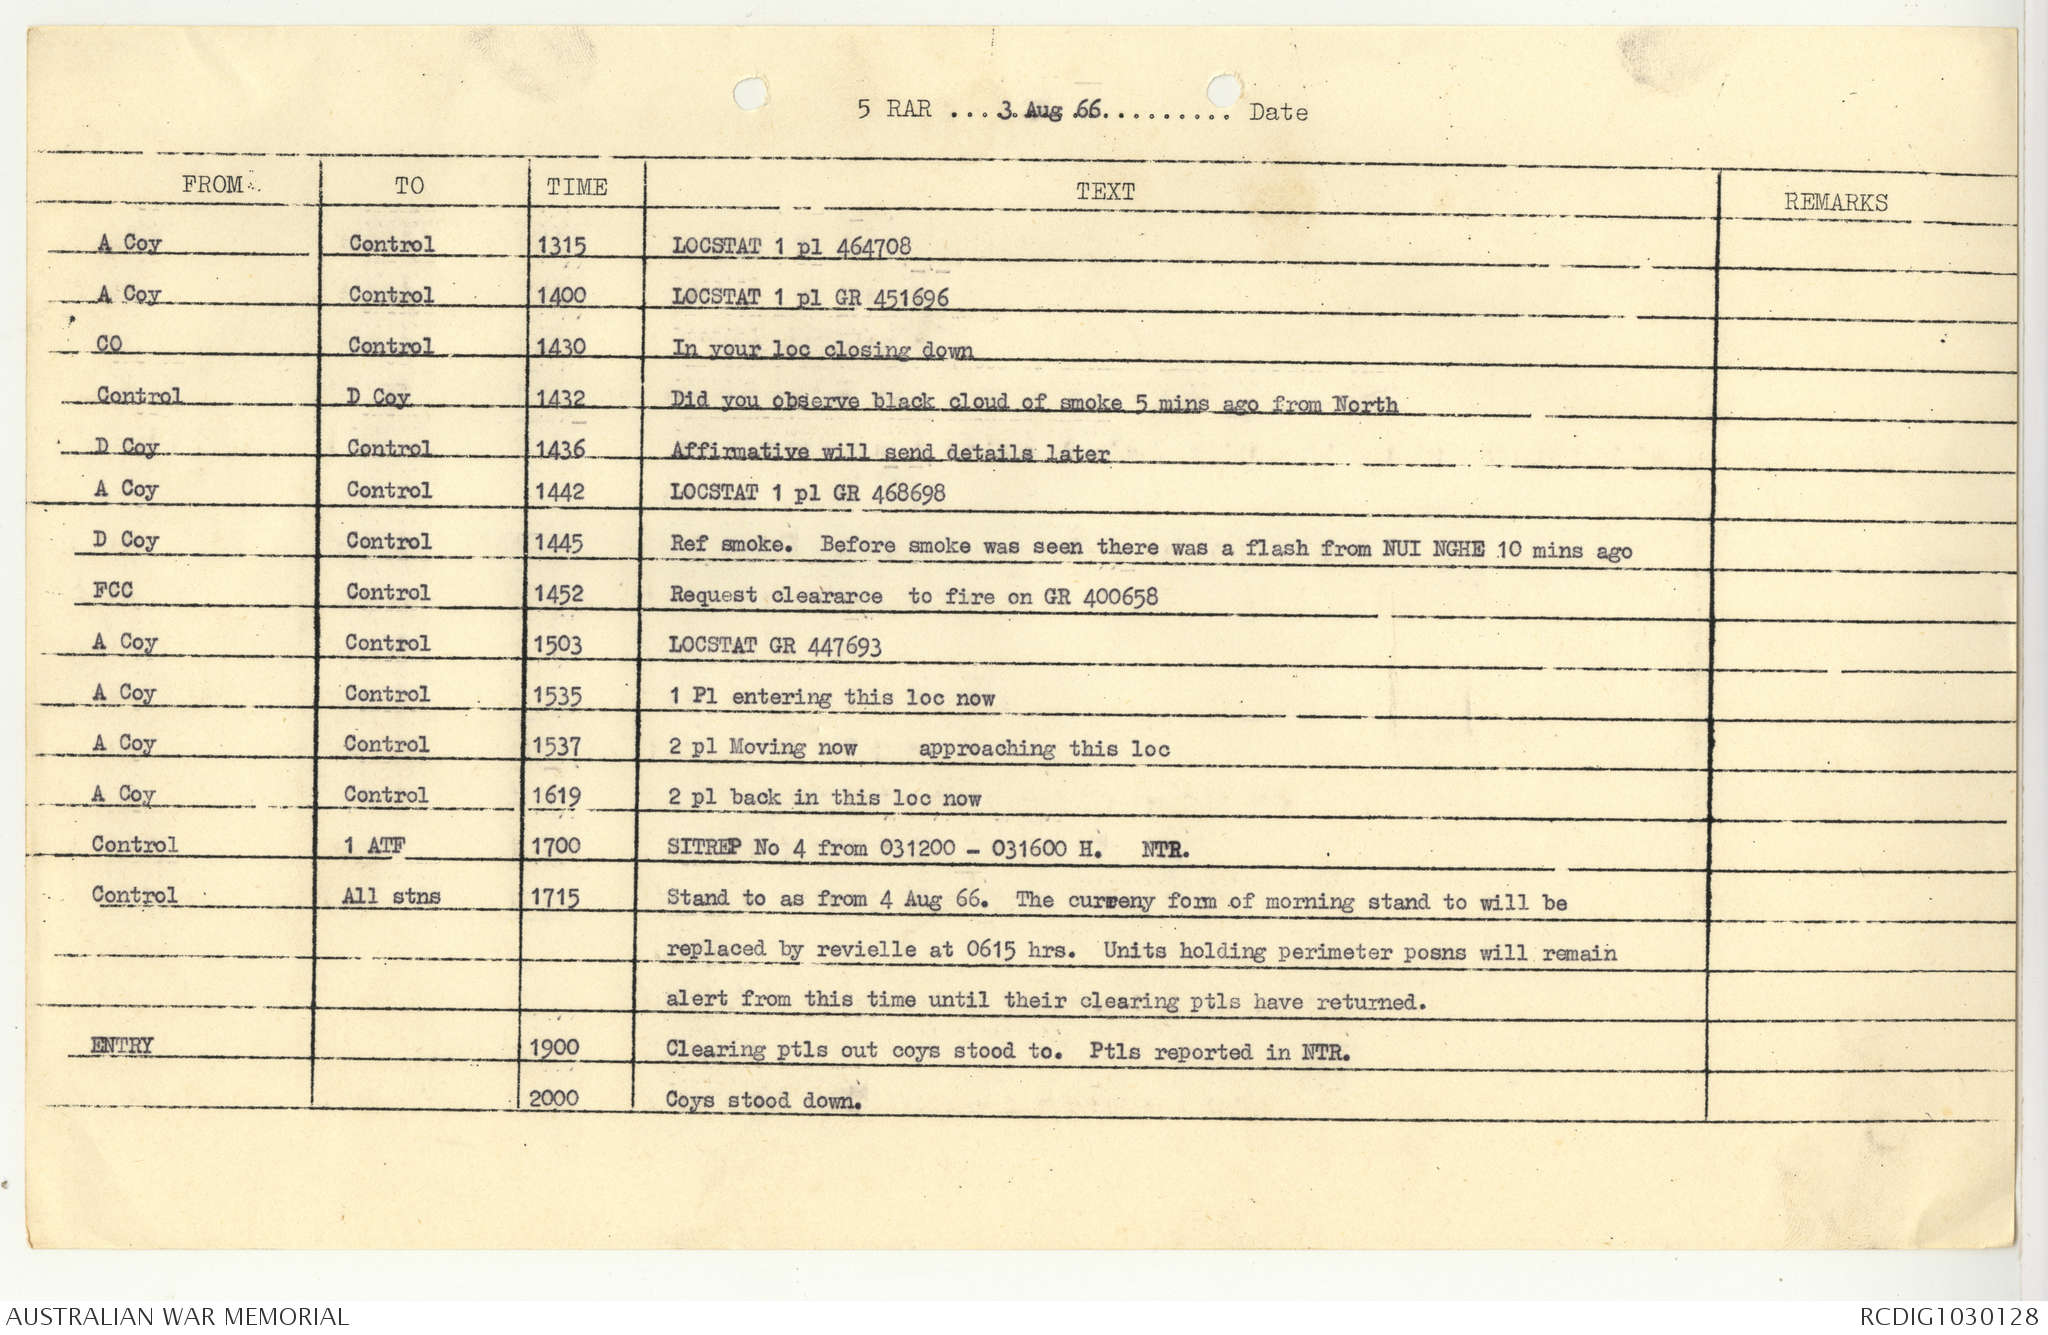 5 RAR ....3 Aug 66.......... Date
FROM TO TIME TEXT REMARKS
A Coy Control 1315 LOCSTAT 1 pl 464708
A Coy Control 1400 LOCSTAT 1 pl GR 451696
CO Control 1430 In your loc closing down
Control D Coy 1432 Did you observe black cloud of smoke 5 mins ago from North
D Coy Control 1436 Affirmative will send details later
A Coy Control 1442 LOCSTAT 1 pl GR 468698
D Coy Control 1445 Ref smoke. Before smoke was seen there was a flash from NUI NGHE 10 mins ago
FCC Control 1452 Request cleararce to fire on GR 400658
A Coy Control 1503 LOCSTAT GR 447693
A Coy Control 1535 1 Pl entering this loc now
A Coy Control 1537 2 pl Moving now approaching this loc
A Coy Control 1619 2 pl back in this loc now
Control 1 ATF 1700 SITREP No 4 from 031200 - 031600 H. NTR.
Control All stns 1715 Stand to as from 4 Aug 66. The curreny form of morning stand to will be
replaced by revielle at 0615 hrs. Units holding perimeter posns will remain
alert from this time until their clearing ptls have returned.
ENTRY 1900 Clearing ptls out coys stood to. Ptls reported in NTR.
2000 Coys stood down.
AUSTRALIAN WAR MEMORIAL RCDIG1030128